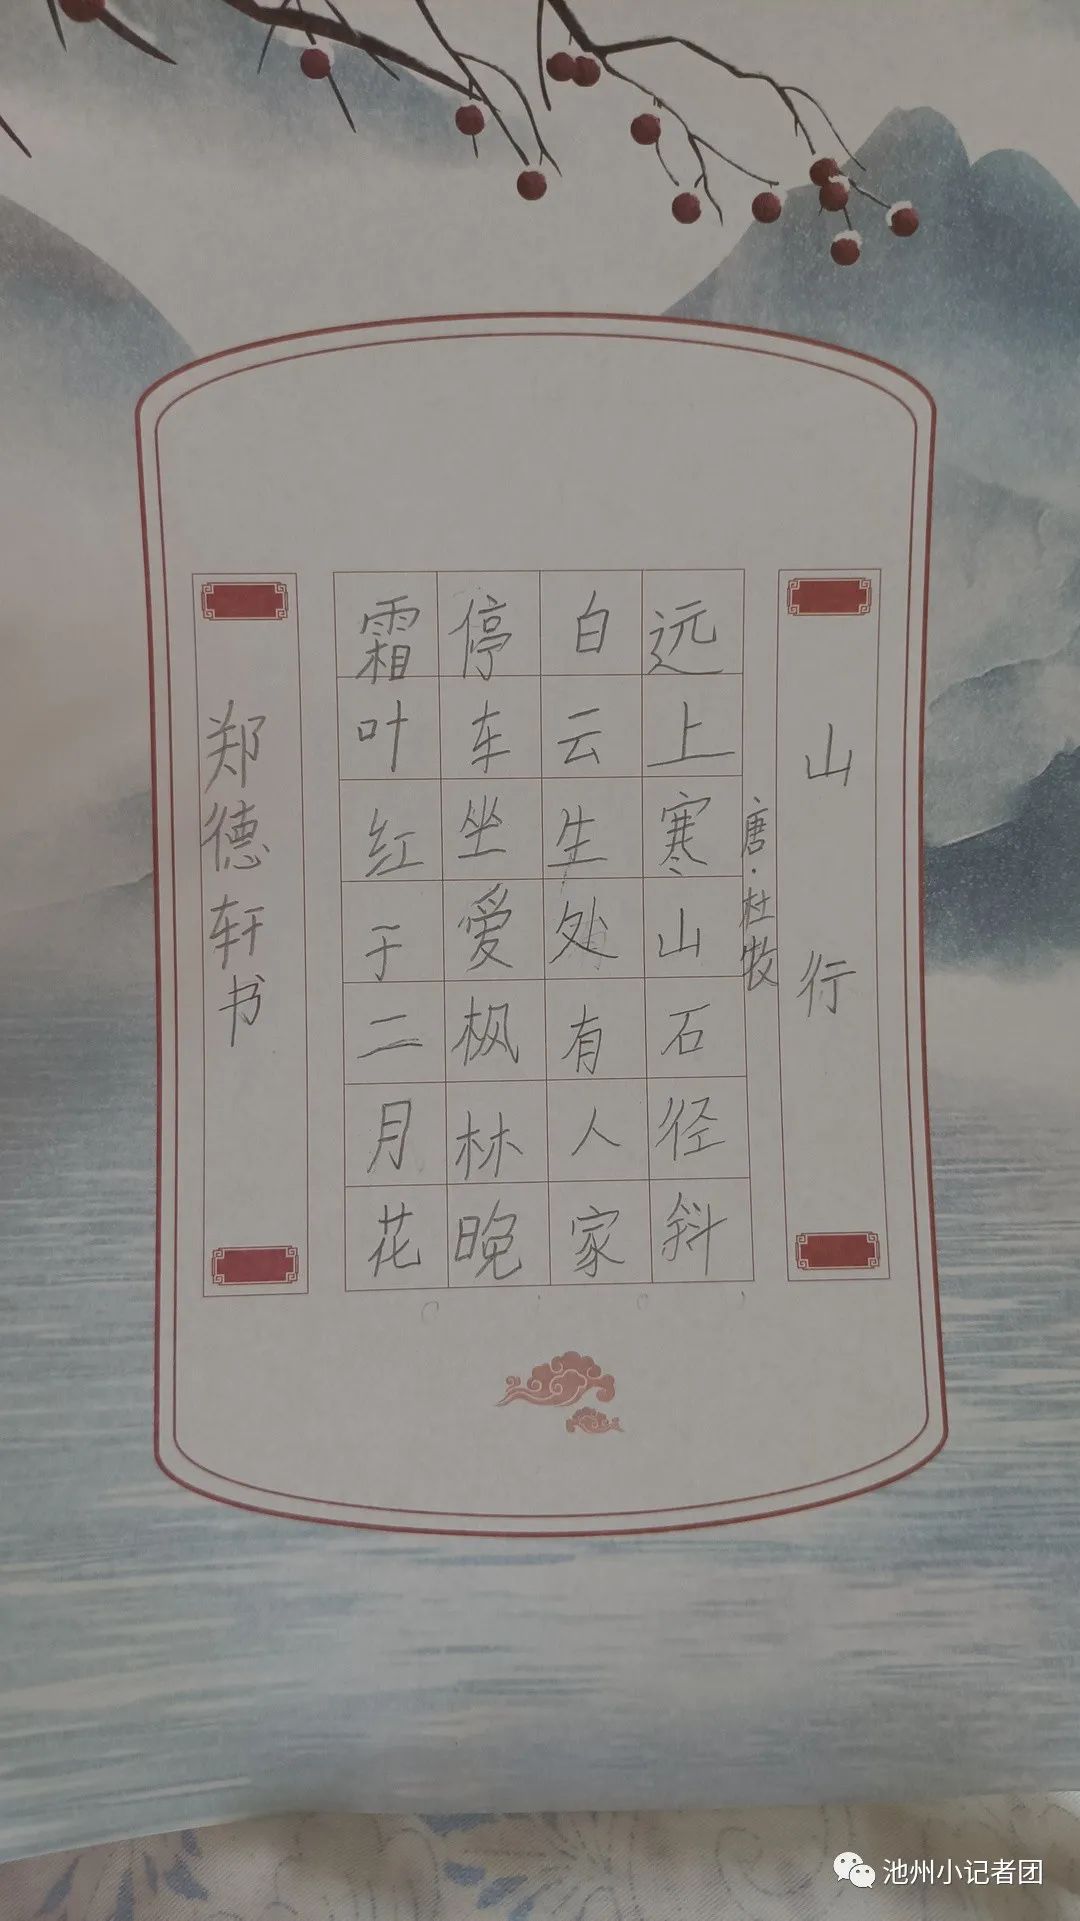 山行
唐·杜牧
远上寒山石径斜
白云生处有人家
停车坐爱枫林晚
霜叶红于二月花
郑德轩书
池州小记者团